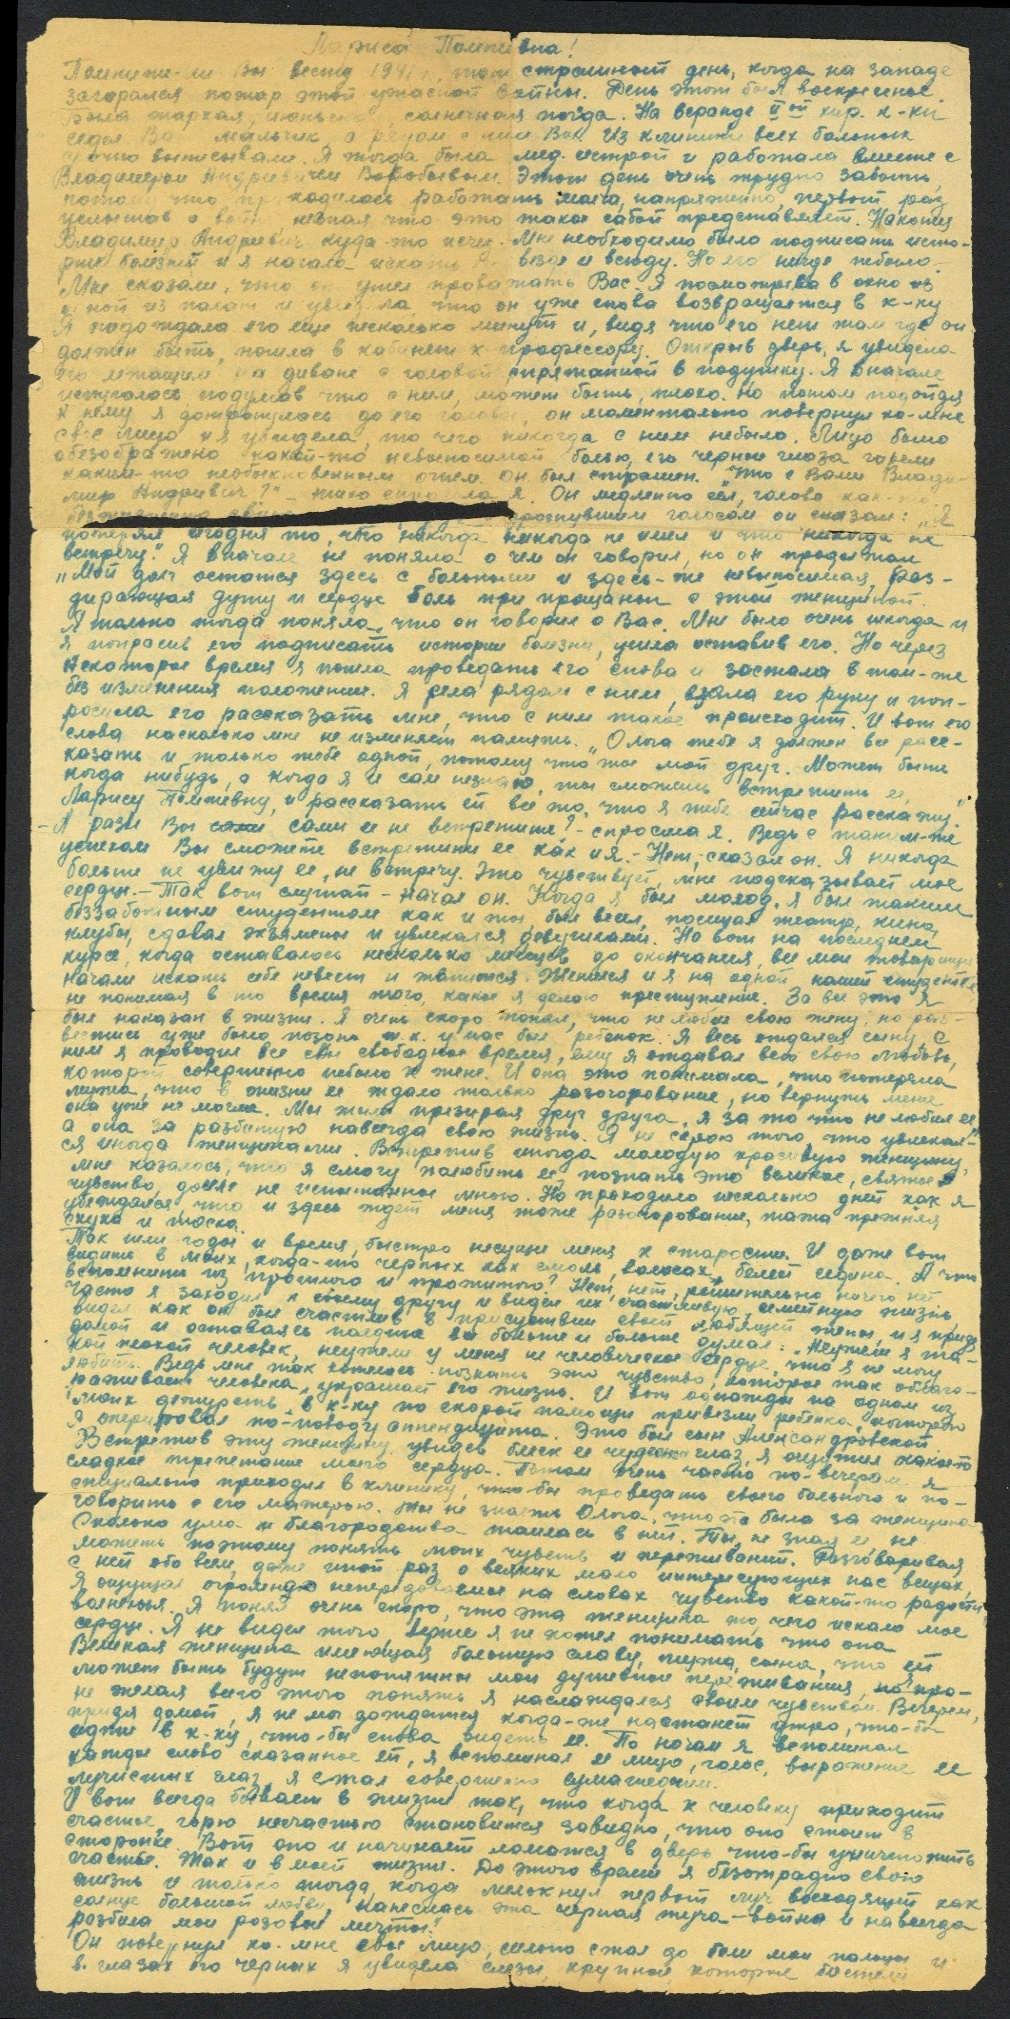 Лариса Полиевна!
Помните ли Вы весну 1941 г., тот страшный день, когда на западе
загорался пожар этой ужасной войны. День этот был воскресенье
Была жаркая, июньская, солнечная погода. На веранде II ой хир. к-ки
сидел Ваш мальчик а рядом с ним Вы. Из клиники всех больных
срочно выписывали. Я тогда была мед. сестрой и работала вместе с
Владимиром Андреевичем Воробьевым. Этот день очень трудно забыть,
потому что приходилось работать много, напряженно, первый раз
услышав о войне, незная что это такое собой представляет. Наконец
Владимир Андреевич куда-то исчез. Мне необходимо было подписать исто-
рии болезней и я начала искать его везде и всюду. Но его нигде небыло.
Мне сказали, что он ушел провожать Вас. Я посмотрела в окно из
одной из палат и увидела, что он уже снова возвращается в к-ку
Я подождала его еще несколько минут и, видя что его нет там где он
должен быть, пошла в кабинет к профессору. Открыв дверь, я увидела
его лежащим на диване с головой спрятанной в подушку. Я вначале
испугалась подумав что с ним, может быть, плохо. Но потом подойдя
к нему я дотронулась до его головы, он моментально повернул ко-мне
свое лицо и я увидела, то чего никогда с ним небыло. Лицо было
обезображено какой-то невыносимой болью, его черные глаза горели
каким-то необыкновенным огнем. Он был страшен. "Что с Вами Влади-
мир Андреевич?" - тихо спросила я. Он медленно сел, голова как-то
голосом он сказал: "Я
потерял сегодня то, что никогда никогда не имел и что никогда не
встречу." Я вначале не поняла о чем он говорил, но он продолжал
"Мой долг остаться здесь с больными и здесь-же невыносимая, раз-
дирающая душу и сердце боль при прощании с этой женщиной.
Я только тогда поняла, что он говорил о Вас. Мне было очень некогда и
я попросив его подписать истории болезни, ушла оставив его. Но через
некоторое время я пошла проведать его снова и застала в том-же
без изменения положении. Я села рядом с ним, взяла его руку и поп-
росила его рассказать мне, что с ним такое происходит. И вот его
слова насколько мне не изменяет память. "Ольга тебе я должен все расс-
казать и только тебе одной, потому что ты мой друг. Может быть
когда нибудь, а когда я и сам незнаю, ты сможешь встретить ее,
Ларису Полиевну, и рассказать ей все то, что я тебе сейчас расскажу."
- А разве Вы сами ее не встретите? - спросила я. Ведь с таким-же
успехом Вы сможете встретить ее как и я. - Нет, сказал он. Я никогда
больше не увижу ее, не встречу. Это чувствует, мне подсказывает мое
сердце. - Так вот слушай - начал он. Когда я был молод, я был таким
беззаботным студентом как и ты, был весел, посещал театр, кино,
клубы, сдавал экзамены и увлекался девушками. Но вот на последнем
курсе, когда оставалось несколько месяцев до окончания, все мои товарищи
начали искать себе невест и жениться. Женился и я на одной нашей студентке
не понимая в то время того, какое я делаю преступление. За все это я
был наказан в жизни. Я очень скоро понял, что не люблю свою жену, но раз-
вестись уже было поздно т.к. у нас был ребенок. Я весь отдался сыну, с
ним я проводил все свое свободное время, ему я отдавал всю свою любовь,
которой совершенно небыло к жене. И она это понимала, что потеряла
мужа, что в жизни ее ждало только разочарование, но вернуть меня
она уже не могла. Мы жили презирая друг друга, я за то что не любил ее,
а она за разбитую навсегда свою жизнь. Я не скрою того, что увлекал-
ся иногда женщинами. Встретив иногда молодую красивую женщину,
мне казалось, что я смогу полюбить ее, познать это великое, святое
чувство, доселе не испытанное мною. Но проходило несколько дней как я
убеждался что и здесь ждет меня тоже разочарование, таже прежняя
скука и тоска.
Так шли годы и время, быстро несущие меня к старости. И даже вот
видишь в моих, когда-то черных как смоль, волосах, белеет седина. А что
вспомнить из прошлого и прожитого? Нет, нет, решительно ничего нет.
Часто я заходил к своему другу и видел их счастливую, семейную жизнь
видел как он был счастлив в присутствии своей любящей жены, и я придя
домой и оставаясь наедине все больше и больше думал: "Неужели я та-
кой плохой человек, неужели у меня не человеческое сердце, что я не могу
любить. Ведь мне так хотелось познать это чувство, которое так облаго-
раживает человека, украшает его жизнь. И вот однажды на одном из
моих дежурств, в к-ку по скорой помощи привезли ребенка которого
я оперировал по-поводу аппендицита. Это был сын Александровской.
Встретив эту женщину, увидев блеск ее чудесных глаз, я ощутил какое-то
сладкое трепетание моего сердца. Потом очень часто по-вечерам я
специально приходил в клинику, что-бы проведать своего больного и по-
говорить с его матерью. Ты не знаешь Ольга, что это была за женщина
Сколько ума и благородства таилось в ней. Ты, не зная ее не
можешь поэтому понять моих чувств и переживаний. Разговаривая
с ней обо всем, даже иной раз о всяких мало интересующих нас вещах,
я ощущал огромное непередаваемое на словах чувство какой-то радости,
волненья. Я понял очень скоро, что эта женщина то, чего искало мое
сердце. Я не видел того, вернее я не хотел понимать что она
Великая женщина имеющая большую славу, мужа, сына, что ей
может быть будут непонятны мои душевные переживания, но про-
не желая всего этого понять я наслаждался своим чувством. Вечером,
придя домой, я не мог дождаться когда-же настанет утро, что-бы
идти в к-ку, что-бы снова видеть ее. По ночам я вспоминал
каждое слово сказанное ей, я вспоминал ее лицо, голос, выражение ее
лучистых глаз, я стал совершенно сумашедшим.
И вот всегда бывает в жизни так, что когда к человеку приходит
счастье, горю несчастью становится завидно, что оно стоит в
сторонке. Вот оно и начинает ломаться в дверь что-бы уничтожить
счастье. Так и в моей жизни. До этого время я безотрадно свою
жизнь и только тогда когда мелькнул первый луч восходящий как
солнце большой любви, нанеслась эта черная туча - война и навсегда
разбила мои розовые мечты!
Он повернул ко-мне свое лицо, сильно сжал до боли мои пальцы и
в глазах его черных я увидела слезы, крупные которые блестели